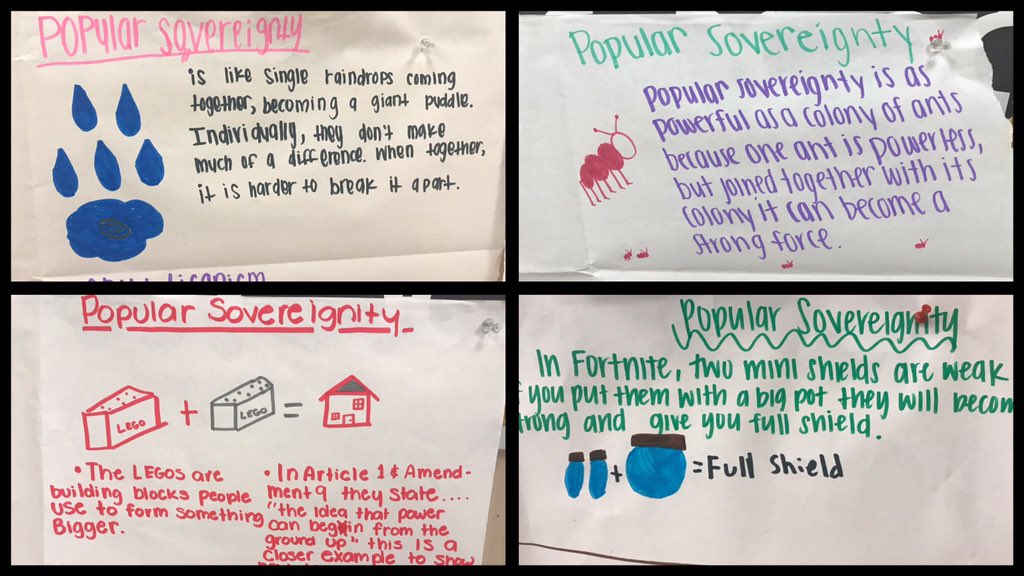 POPULAR SOVEREIGNTY
is like single raindrops coming
together, becoming a giant puddle.
Individually, they don't make
much of a difference. When together,
it is harder to break it apart.
Popular Sovereignty
Popular sovereignty is as
powerful as a colony of ants
because one ant is powerless,
but joined together with its
colony it can become a
strong force.
Popular Sovereignity
LEGO + LEGO =
• The LEGOs are
building blocks people
use to form something
Bigger.
• In Article 1 & Amend-
ment 9 they state....
"the idea that power
can begin from the
ground up" this is a
closer example to show
Popular Sovereignity
In Fortnite, two mini shields are weak
you put them with a big pot they will becom
trong and give you full shield.
+ = Full Shield